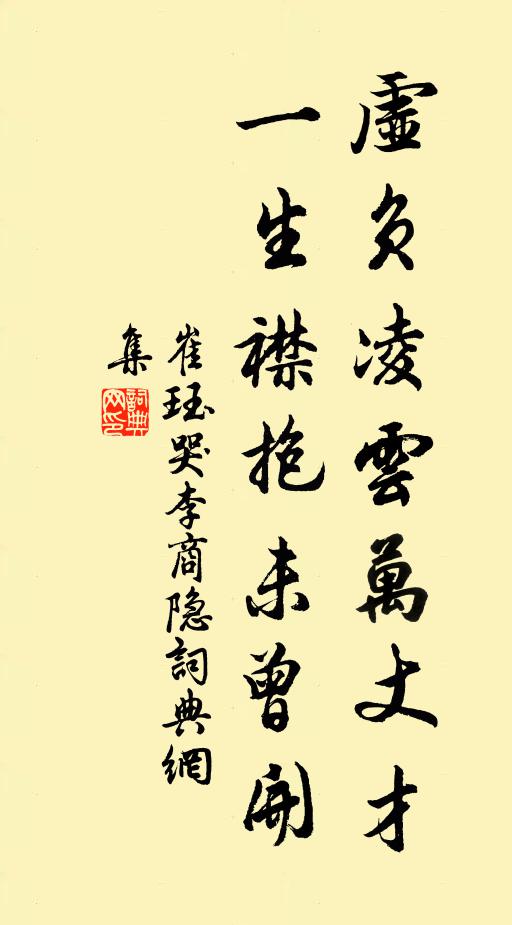 虛負凌雲萬丈才
一生襟抱未曾開
崔珏哭李商隐詞典網
集
詞典
网印